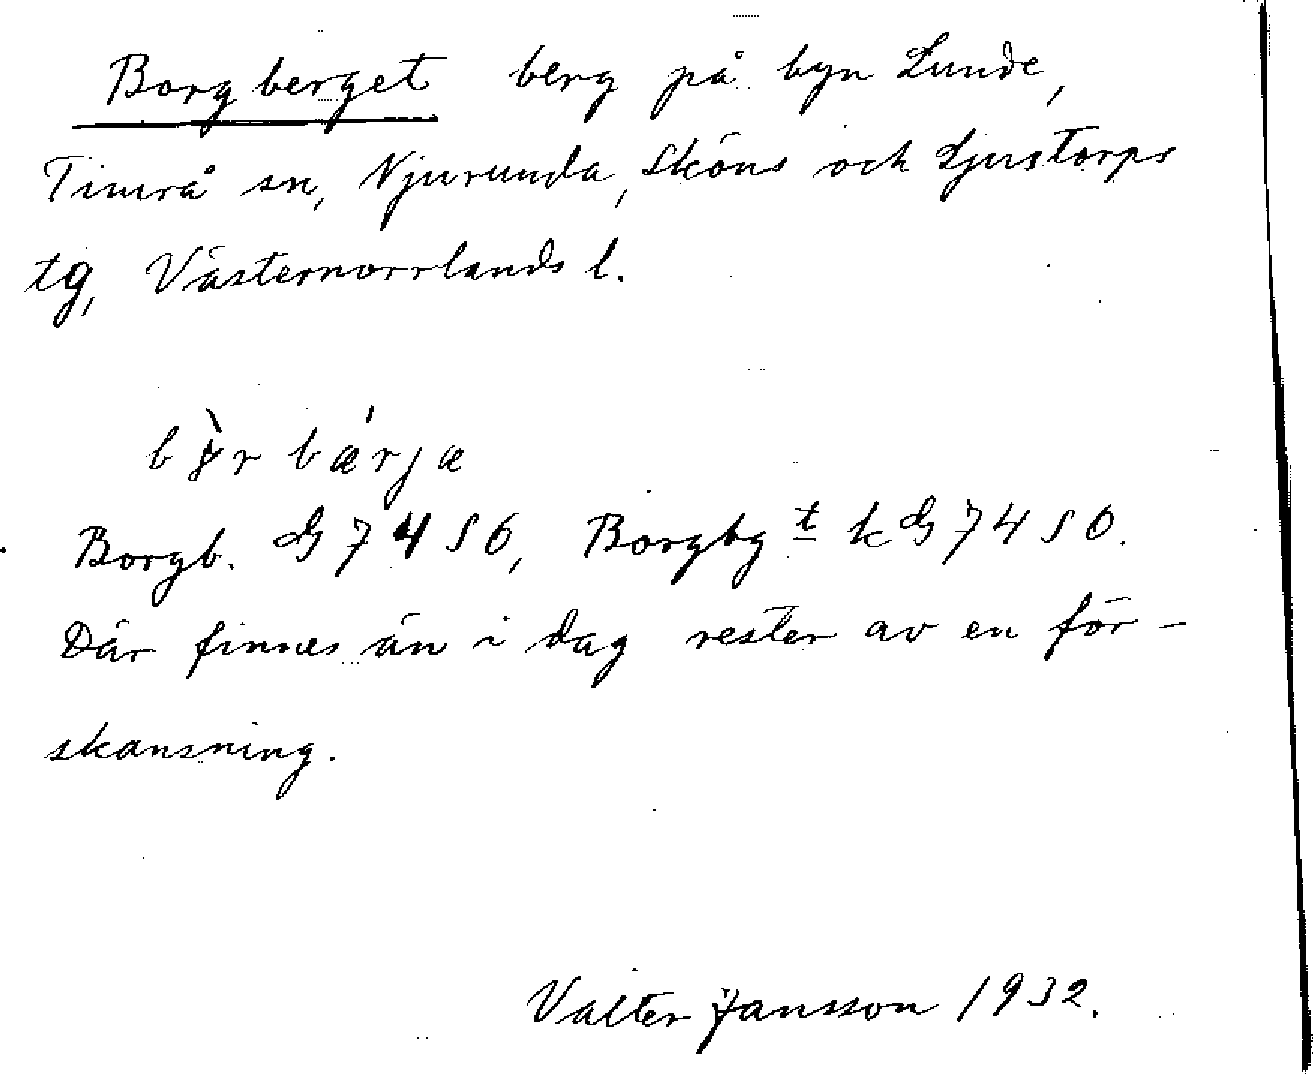 Borgberget berg på byn Lunde,
Timrå sn, Njurunda, Sköns och Ljustorps
tg, Västernorrlands l.
Borgb. G 7456, Borgbg t k G 7450.
Där finnes än i dag rester av en för-
skansning.
Valter Jansson 1932.